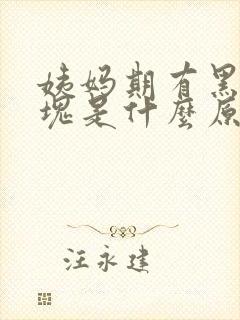 姨妈期有黑
块是什麼原
汪永建